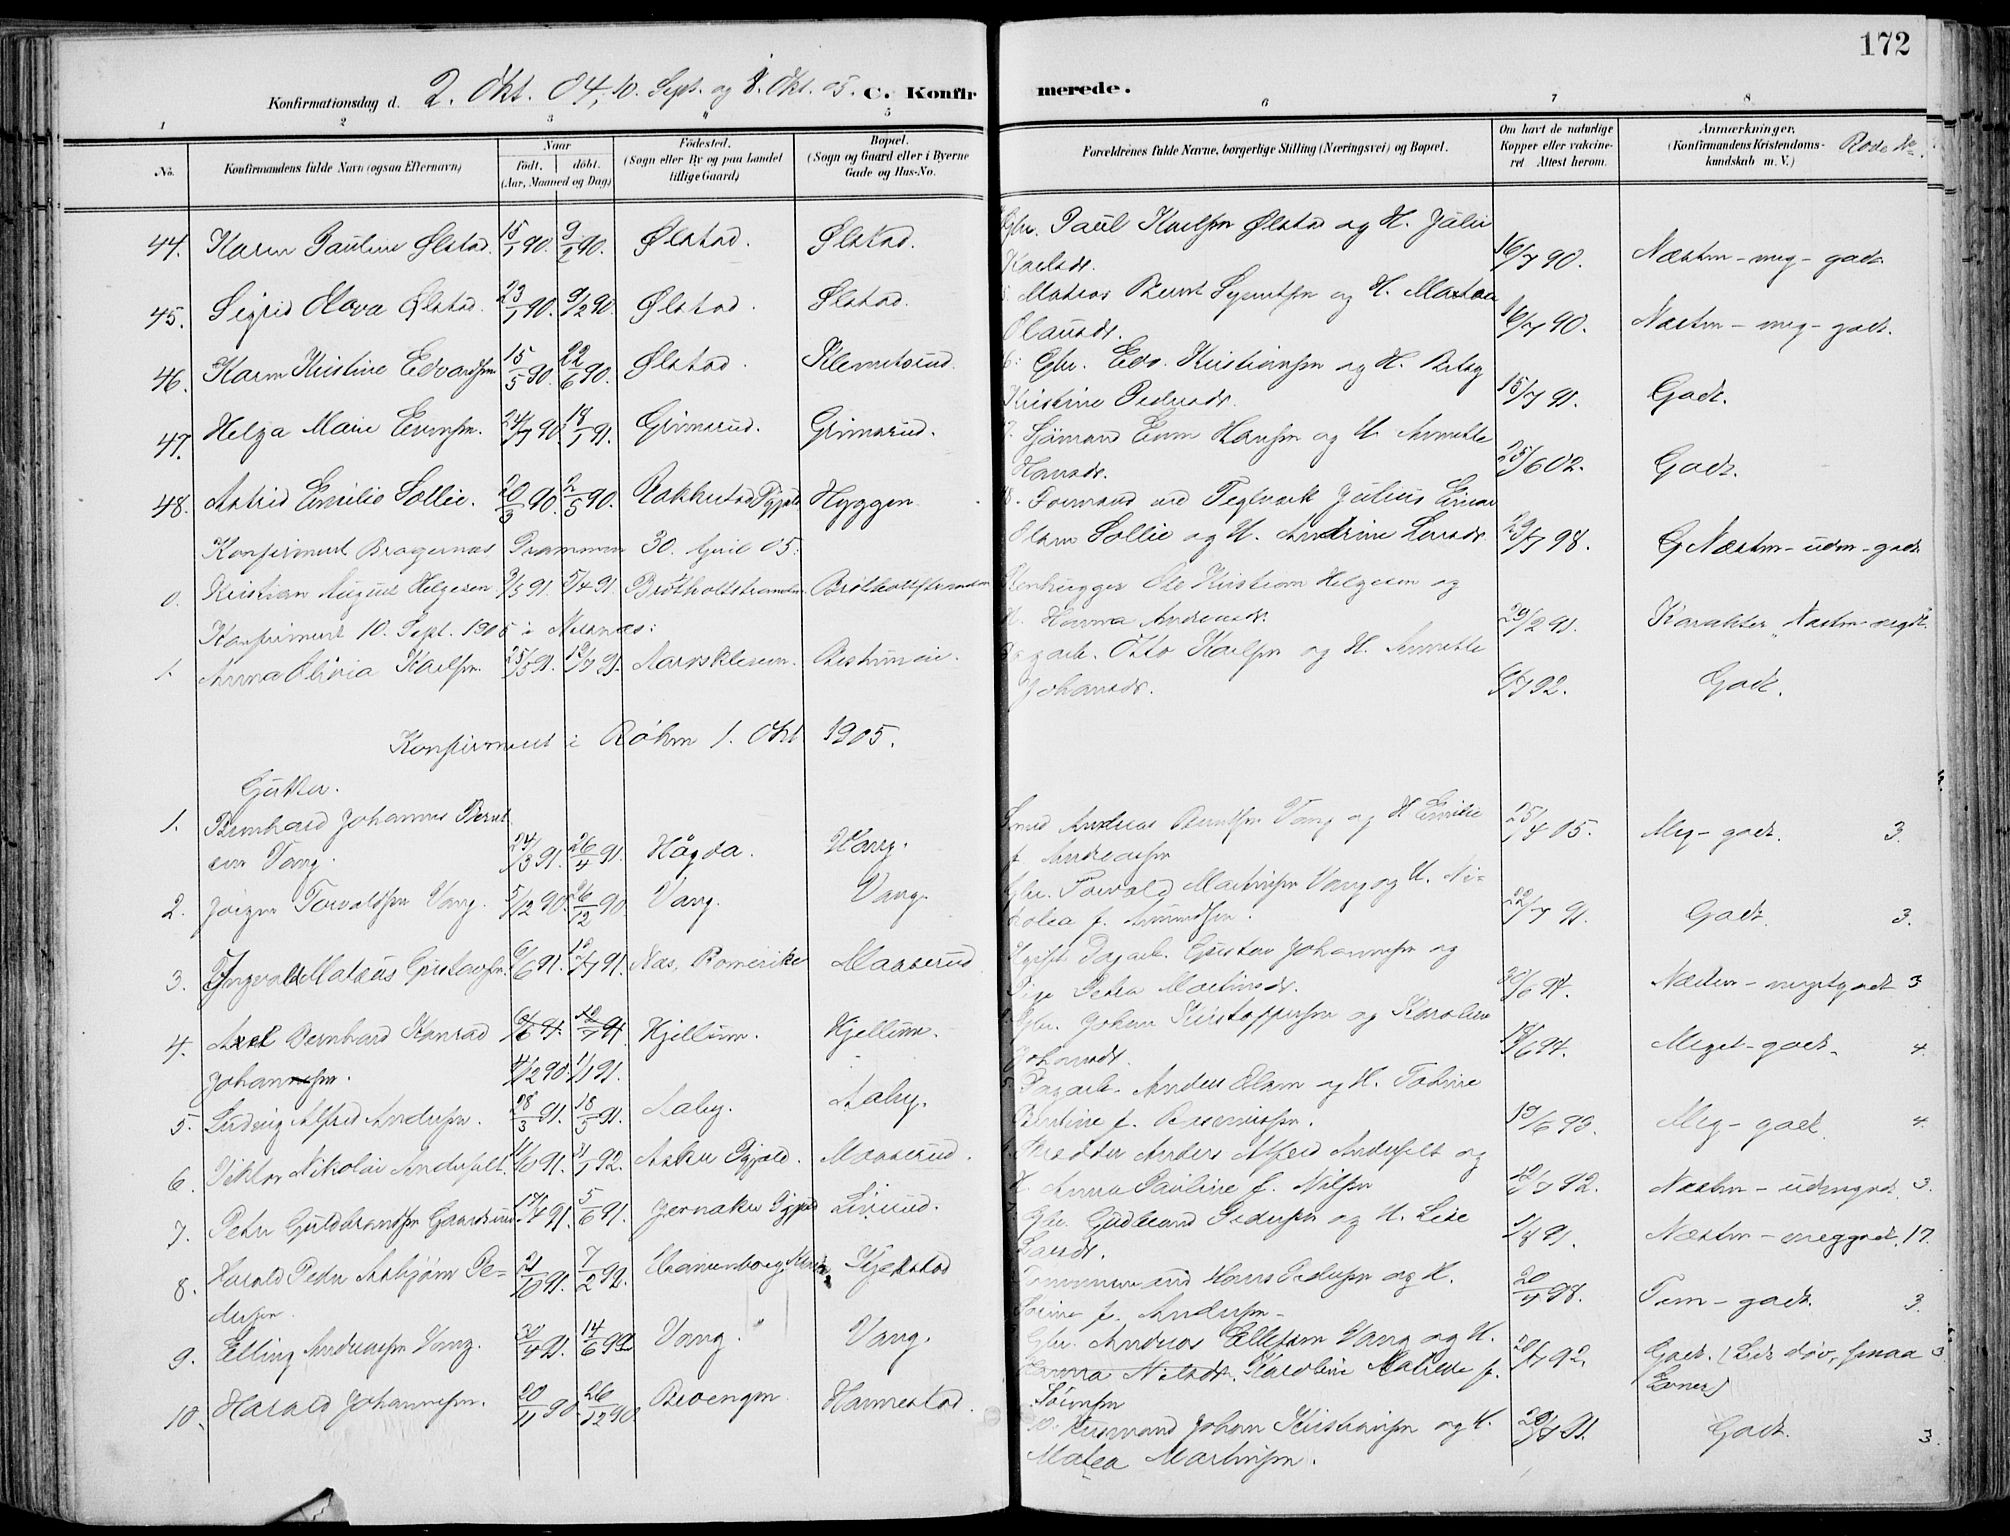 172
Konfirmationsdag d. 2. Okt. 04, 10. Sept. og 1. Okt. 05. C. Konfirmerede.
1 2 3 4 5 6 7 8
No.
Konfirmandens fulde Navn (ogsaa Efternavn)
Naar
født. døbt.
(Aar, Maaned og Dag)
Fødested.
(Sogn eller By og paa Landet tillige Gaard)
Bopæl.
(Sogn og Gaard eller i Byerne Gade og Hus-No.
Forældrenes fulde Navne, borgerlige Stilling (Næringsvei) og Bopæl.
Om havt de naturlige Kopper eller vaccineret Attest herom.
Anmærkninger.
(Konfirmandens Kristendomskundskab m. V.)
Rode No.
44. Karen Pauline Ølstad. 15/1 90. 9/2 90. Ølstad. Ølstad. Gbr. Paul Karlsen Ølstad og H. Julie
Karlsdr. 16/7 90. Næsten - meg - godt.
45. Sigrid Ølstad. 23/1 90. 9/2 90. Ølstad. Ølstad. Matros Bernt Syvertsen og H. Martea
Olausdr. 16/7 90. Næsten - meg - godt.
46. Karen Kristine Edvardsen 15/5 90. 22/6 90. Ølstad. Klemetsrud. Gbr. Edv. Kristiansen og H. Betsy
Kristine Pedersdr. 15/7 91. Godt.
47. Helga Marie Evensen. 24/7 90 18/1 91. Grimsrud. Grimsrud. Sjømand Even Hansen og H. Annette
Hansdr. 25/6 02. Godt.
48. Astrid Emilie Sollie. 20/3 90. 2/5 90. Rakkestad Hyggen. Formand ved Teglverk Julius Einar
Olsen Sollie og H. Andrine Larsdr. 29/7 98. Næsten - udm - godt
Konfirmert Bragernæs Drammen 30. April 05:
0. Kristian August Helgesen 9/3 91. 5/4 91. Stenhugger Ole Kristian Helgesen og
H. Hanna Andreasdr. 29/2 91. Karakter "Næsten - megdt.
Konfirmert 10. Sept. 1905 i Nesnæs:
1. Anna Olivia Karlsen 25/5 91. 12/7 91. Dagarb. Otto Karlsen og H. Annette
Johansdr. 6/7 92. Godt.
Konfirmert i Røken 1. Okt 1905.
Gutter.
1. Bernhard Johannes Bernt
sen Vang. 24/3 91. 26/4 91. Høgda. Vang. Smed Andreas Berntsen Vang og H Emilie
f. Andreassen 25/4 05. Meg - godt. 3.
2. Jørgen Torvaldsen Vang. 5/12 90. 26/12 90 Vang. Vang. Gbr. Torvald Martinsen Vang og H. Ni-
kolea f. Amundsen. 22/7 91. Godt. 3.
3. Ingvald Mataus Gustavsen. 6/6 91. 12/7 91. Næs, Romerike Maaserud Dagarb. Gustav Johannesen og
Pige Petra Martinsdr. 30/6 94. Næsten - meget godt 3
4. Axel Bernhard Konrad
Johannesen. 4/12 90. 1/1 91. Kjellum. Kjellum. Gbr. Johan Kristoffersen og Karoline
Johansdr. 19/6 94. Meget - godt. 4.
5. Ludvig Alfred Andersen. 28/3 91. 18/5 91. Aaby. Aaby. Dagarb. Anders Olsen og H. Tobine
Bentine f. 19/6 93. Meg - godt. 4.
6. Viktor Nikolai Anderfelt. 11/10 91. 31/1 92. Asker Maaserud. Skrædder Anders Alfred Anderfelt og
H. Anna Pauline f. Nilsen 12/7 92. Næsten - udmgodt. 3.
7. Peter Guldbrandsen Gaardsrud. 17/4 91. 5/6 91. Linerud. Gbr. Gudbrand Pedersen og H. Lise
Larsdr. 1/8 91. Næsten - meggodt. 17.
8. Harald Peder Asbjørn Pe-
dersen. 21/10 91. 7/2 92. Kjekstad Hans Pedersen og H.
Sørine f. Andersen 20/4 98. Tem - godt. 3.
9. Elling Andreassen Vang. 30/4 92. 14/6 92 Vang. Vang. Gbr. Andreas Ellefsen Vang og H.
Emma Nilsdr. Karoline Matilde f.
Sørensen 20/7 92. Godt. (Lidt døv, smaa 3
Evner)
10. Harald Johannesen. 20/11 90. 26/12 90. Hannestad. Husmand Johan Kristiansen og H.
Matea Martinsen. 20/7 91. Godt. 3.